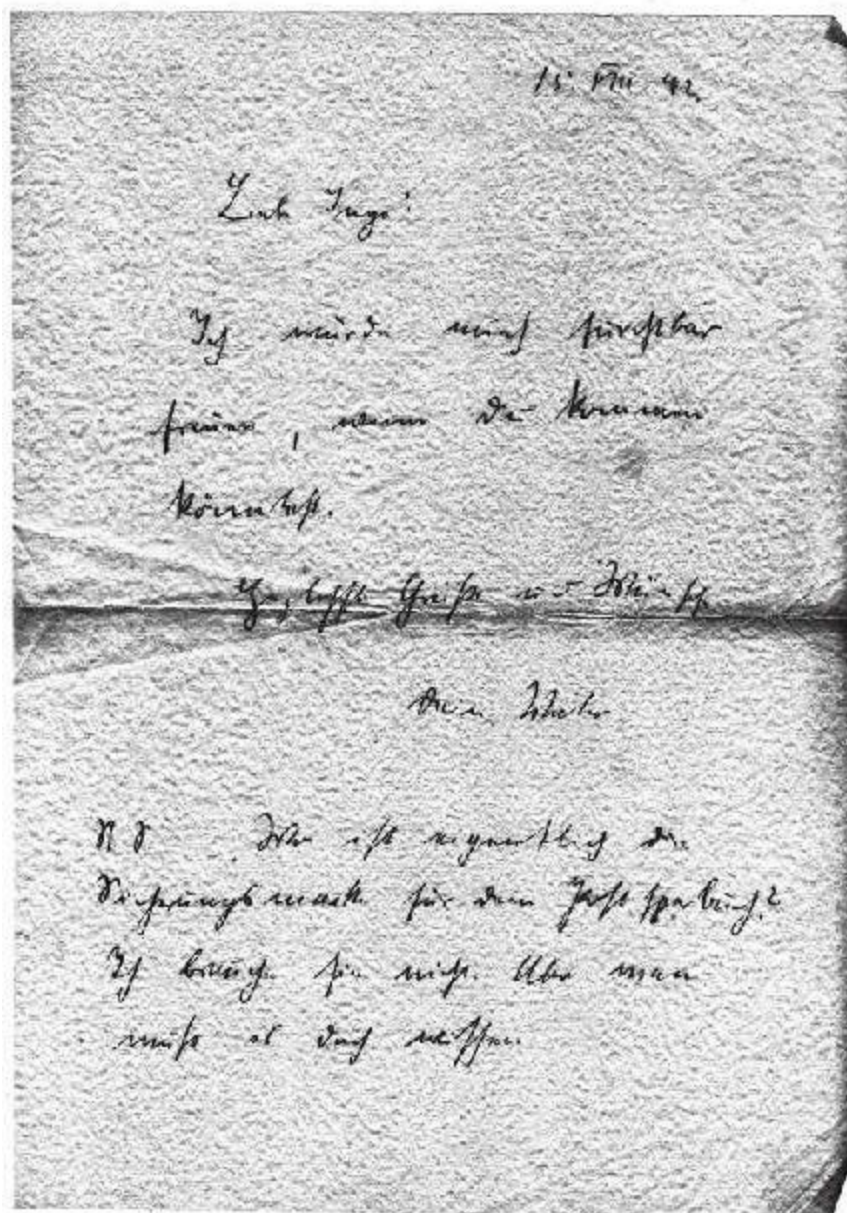 15. VIII 42.
Liebe Inge!
Ich würde mich furchtbar
freuen, wenn Du kommen
könntest.
Herzlichste Grüße und Wünsche
Dein
N.S. Wo ist eigentlich die
Sicherungsmarke für dein Postsparbuch?
Ich brauche sie nicht. Aber man
muß es doch wissen.